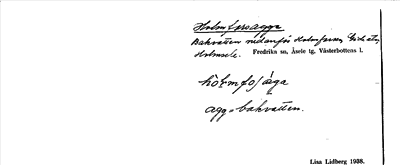 Holmforsagge
Bakvatten nedanför Holmforsen,
Holmsele. Fredrika sn, Åsele tg, Västerbottens l.
agg = bakvatten.
Lisa Lidberg 1938.